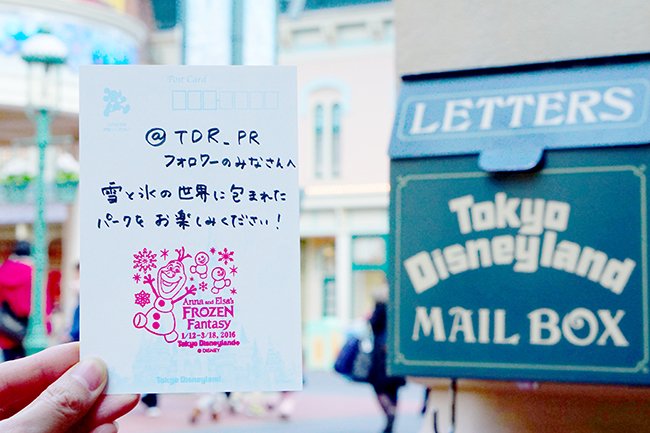 Post Card
@TDR_PR
フォロワーのみなさんへ
雪と氷の世界に包まれた
パークを お楽しみください!
Anna and Elsa's
FROZEN
Fantasy
1/12–3/18, 2016
Tokyo Disneyland®
© DISNEY
Tokyo Disneyland
LETTERS
Tokyo
Disneyland
MAIL BOX